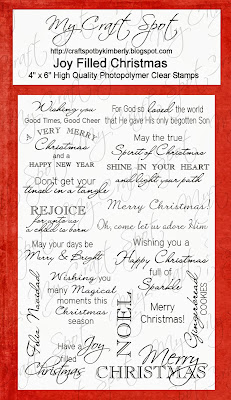 My Craft Spot
http://craftspotbykimberly.blogspot.com
Joy Filled Christmas
4" x 6" High Quality Photopolymer Clear Stamps
Wishing you
Good Times, Good Cheer
A VERY MERRY
Christmas
and a
HAPPY NEW YEAR
Don't get your
tinsel in a tangle
REJOICE
for unto us
a child is born
May your days be
Merry & Bright
Wishing you
many Magical
moments this
Christmas
season
Feliz Navidad
Have a Joy
filled
Christmas
For God so loved the world
that He gave His only begotten Son
May the true
Spirit of Christmas
SHINE IN YOUR HEART
and light your path
Merry Christmas!
Oh, come let us adore Him
Wishing you a
Happy Christmas
full of
Sparkle
NOEL
Merry
Christmas!
Gingerbread
COOKIES
Merry
CHRISTMAS